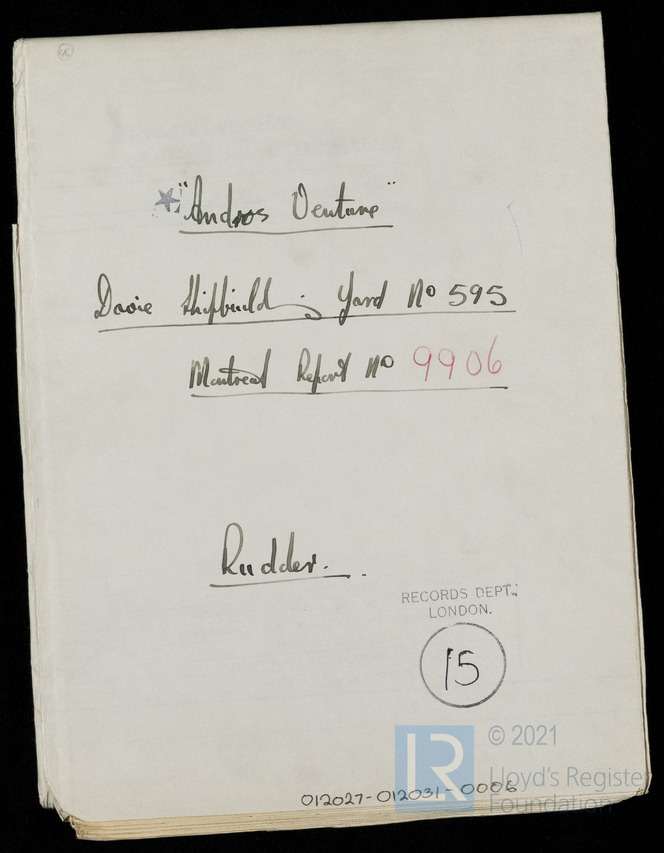 "Andros Venture"
Davie Shipbuilding Yard No 595
Montreal Report No 9906
Rudder.
RECORDS DEPT.
LONDON.
15
LR © 2021
Lloyd's Register
Foundation
012027-012031-0006